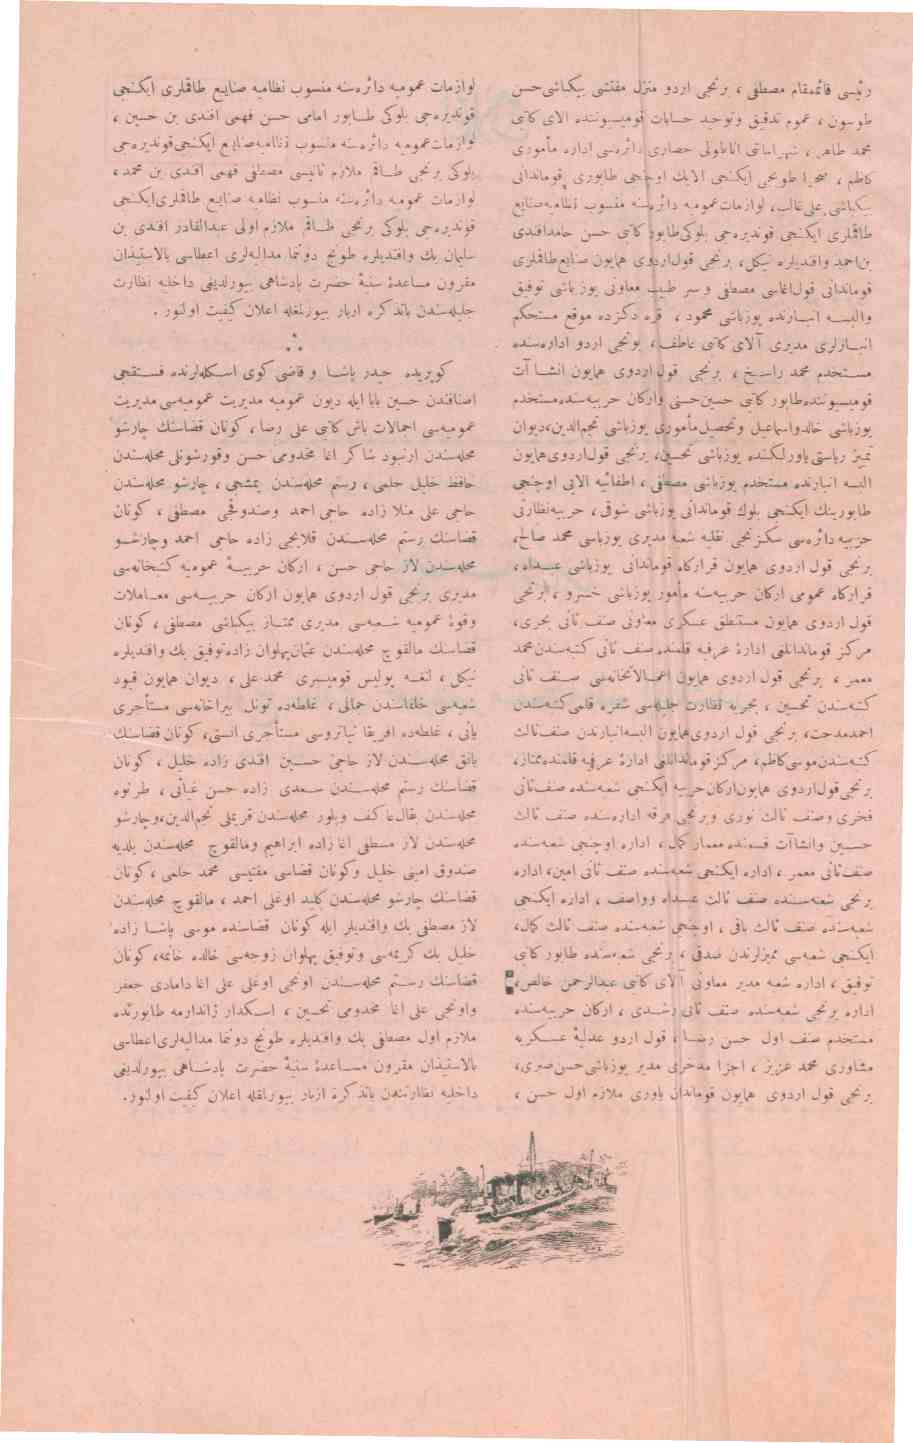 رئیسی قائممقام مصطفی ، برنجی اردو منزل مفتشی بیکباشی حسن
طوسون ، عموم تدقیق وتوحید حسابات قومیسیوننده الای کاتبی
محمد طاهر ، شهر امانتی اناطولی حصاری دائره‌سی اداره مأموری
کاظم ، صحرا طوبجی ایکنجی الاینك اوچنجی طابوری قوماندانی
بیکباشی علی غالب، لوازمات عمومیه دائره‌سنه منسوب نظامیه صنایع
طاقملری ایکنجی قوندیره‌جی بلوکی طابور کاتبی حسن حامد افندی
بن احمد وافندیلره نیکل، برنجی قول اردوی همایون صنایع طاقملری
قوماندانی قول اغاسی مصطفی و سر طبیب معاونی یوزباشی توفیق
والبسه انبارنده یوزباشی محمود ، قره دکزده موقع مستحکم
انبارلری مدیری آلای کاتبی عاطف ، برنجی اردو اداره‌سنده
مستخدم محمد راسخ ، برنجی قول اردوی همایون انشاآت
قومیسیوننده طابور کاتبی حسین حسنی وارکان حربیه‌سنده مستخدم
یوزباشی خالد واسماعیل وتحصیل مأموری یوزباشی نجم‌الدین، دیوان
تمییز ریاستی یاورلکنده یوزباشی تحسین، برنجی قول اردوی همایون
البسه انبارنده مستخدم یوزباشی مصطفی ، اطفائیه الایی اوچنجی
طابورینك ایکنجی بلوك قوماندانی یوزباشی شوقی ، حربیه نظارتی
حربیه دائره‌سی سکزنجی نقلیه شعبه مدیری یوزباشی محمد صالح،
برنجی قول اردوی همایون قرارکاه قوماندانی یوزباشی عبدالله ،
قرارکاه عمومی ارکان حربیه‌سنه مأمور یوزباشی خسرو ، برنجی
قول اردوی همایون مستنطق عسکری معاونی صنف ثانی بحری،
مرکز قوماندانلغی ادارهٔ عرفیه قلمنده صنف ثانی کتبه‌سندن محمد
معمر ، برنجی قول اردوی همایون اعمالاتخانه‌سی صنف ثانی
کتبه‌سندن تحسین ، بحریه نظارت جلیله‌سی شفره قلمی کتبه‌سندن
احمد مدحت، برنجی قول اردوی همایون البسه انبارندن صنف ثالث
کتبه‌سندن موسی کاظم، مرکز قوماندانلغی ادارهٔ عرفیه قلمنده ممتاز،
برنجی قول اردوی همایون ارکان حربیه ایکنجی شعبه‌سنده صنف ثانی
فخری وصنف ثالث نوری وبرنجی فرقه اداره‌سنده صنف ثالث
حسین وانشاآت قسمنده معمار کمال ، اداره اوچنجی شعبه‌سنده
صنف ثانی معمر ، اداره ایکنجی شعبه‌سنده صنف ثانی امین، اداره
برنجی شعبه‌سنده صنف ثالث عبدالله وواصف ، اداره ایکنجی
شعبه‌سنده صنف ثالث باقی ، اوچنجی شعبه‌سنده صنف ثالث کمال،
ایکنجی شعبه‌سی ممیزلرندن صدقی ، برنجی شعبه‌سنده طابور کاتبی
توفیق ، اداره شعبه مدیر معاونی آلای کاتبی عبدالرحمن خالص،
اداره برنجی شعبه‌سنده صنف ثانی رشدی ، ارکان حربیه‌سنده
مستخدم صنف اول حسن رضا ، قول اردو عدلیهٔ عسکریه
مشاوری محمد عزیز ، اجزا مدخری مدیر یوزباشی حسن صبری،
برنجی قول اردوی همایون قوماندان یاوری ملازم اول حسن ،
لوازمات عمومیه دائره‌سنه منسوب نظامیه صنایع طاقملری ایکنجی
قوندیره‌جی بلوکی طابور امامی حسن فهمی افندی بن حسین ،
لوازمات عمومیه دائره‌سنه منسوب نظامیه صنایع ایکنجی قوندیره‌جی
بلوکی برنجی طاقم ملازم ثانیسی مصطفی فهمی افندی بن محمد ،
لوازمات عمومیه دائره‌سنه منسوب نظامیه صنایع طاقملری ایکنجی
قوندیره‌جی بلوکی برنجی طاقم ملازم اولی عبدالقادر افندی بن
سلیمان بك وافندیلره طونج دونما مدالیه‌لری اعطاسی بالاستیذان
مقرون مساعدهٔ سنیهٔ حضرت پادشاهی بیورلدیغی داخلیه نظارت
جلیله‌سندن باتذکره ازبار بیورلمغله اعلان کیفیت اولنور .
⁂
کوپریده حیدر پاشا و قاضی کوی اسکله‌لرنده فستقجی
اصنافندن حسین بابا ایله دیون عمومیه مدیریت عمومیه‌سی مدیریت
عمومیه‌سی اجمالات باش کاتبی علی رضا ، کوتان قضاسنك چارشو
محله‌سندن ارنبود شاکر اغا مخدومی حسن وقورشونلی محله‌سندن
حافظ خلیل حلمی ، رستم محله‌سندن یمشجی ، چارشو محله‌سندن
حاجی علی منلا زاده حاجی احمد وصندوقجی مصطفی ، کوتان
قضاسنك رستم محله‌سندن قلایجی زاده حاجی احمد وچارشو
محله‌سندن لاز حاجی حسن ، ارکان حربیهٔ عمومیه کتبخانه‌سی
مدیری برنجی قول اردوی همایون ارکان حربیه‌سی معاملات
وقوهٔ عمومیه شعبه‌سی مدیری ممتاز بیکباشی مصطفی ، کوتان
قضاسنك مالقوچ محله‌سندن عثمان پهلوان زاده توفیق بك وافندیلره
نیکل ، لنغه پولیس قومیسری محمد علی ، دیوان همایون قیود
شعبه‌سی خلفاسندن جمالی ، غلطه‌ده تونل بیراخانه‌سی مستأجری
یانی ، غلطه‌ده افریقا تیاتروسی مستأجری انستی، کوتان قضاسنك
یانق محله‌سندن لاز حاجی حسین افندی زاده خلیل ، کوتان
قضاسنك رستم محله‌سندن سعدی زاده حسن غیاثی ، طرنوه
محله‌سندن بقال عاکف وبلور محله‌سندن قریملی نجم‌الدین، وچارشو
محله‌سندن لاز مصطفی اغا زاده ابراهیم ومالقوچ محله‌سندن بلدیه
صندوق امینی خلیل وکوتان قضاسی مفتیسی محمد حلمی ، کوتان
قضاسنك چارشو محله‌سندن کلید اوغلی احمد ، مالقوچ محله‌سندن
لاز مصطفی بك وافندیلر ایله کوتان قضاسنده موسی پاشا زاده
خلیل بك کریمه‌سی وتوفیق پهلوان زوجه‌سی خالده خانمه، کوتان
قضاسنك رستم محله‌سندن اونجی اوغلی علی اغا دامادی جعفر
واونجی علی اغا مخدومی تحسین ، اسکدار ژاندارمه طابورنده
ملازم اول مصطفی بك وافندیلره طونج دونما مدالیه‌لری اعطاسی
بالاستیذان مقرون مساعدهٔ سنیهٔ حضرت پادشاهی بیورلدیغی
داخلیه نظارتندن باتذکره ازبار بیورلمغله اعلان کیفیت اولنور.